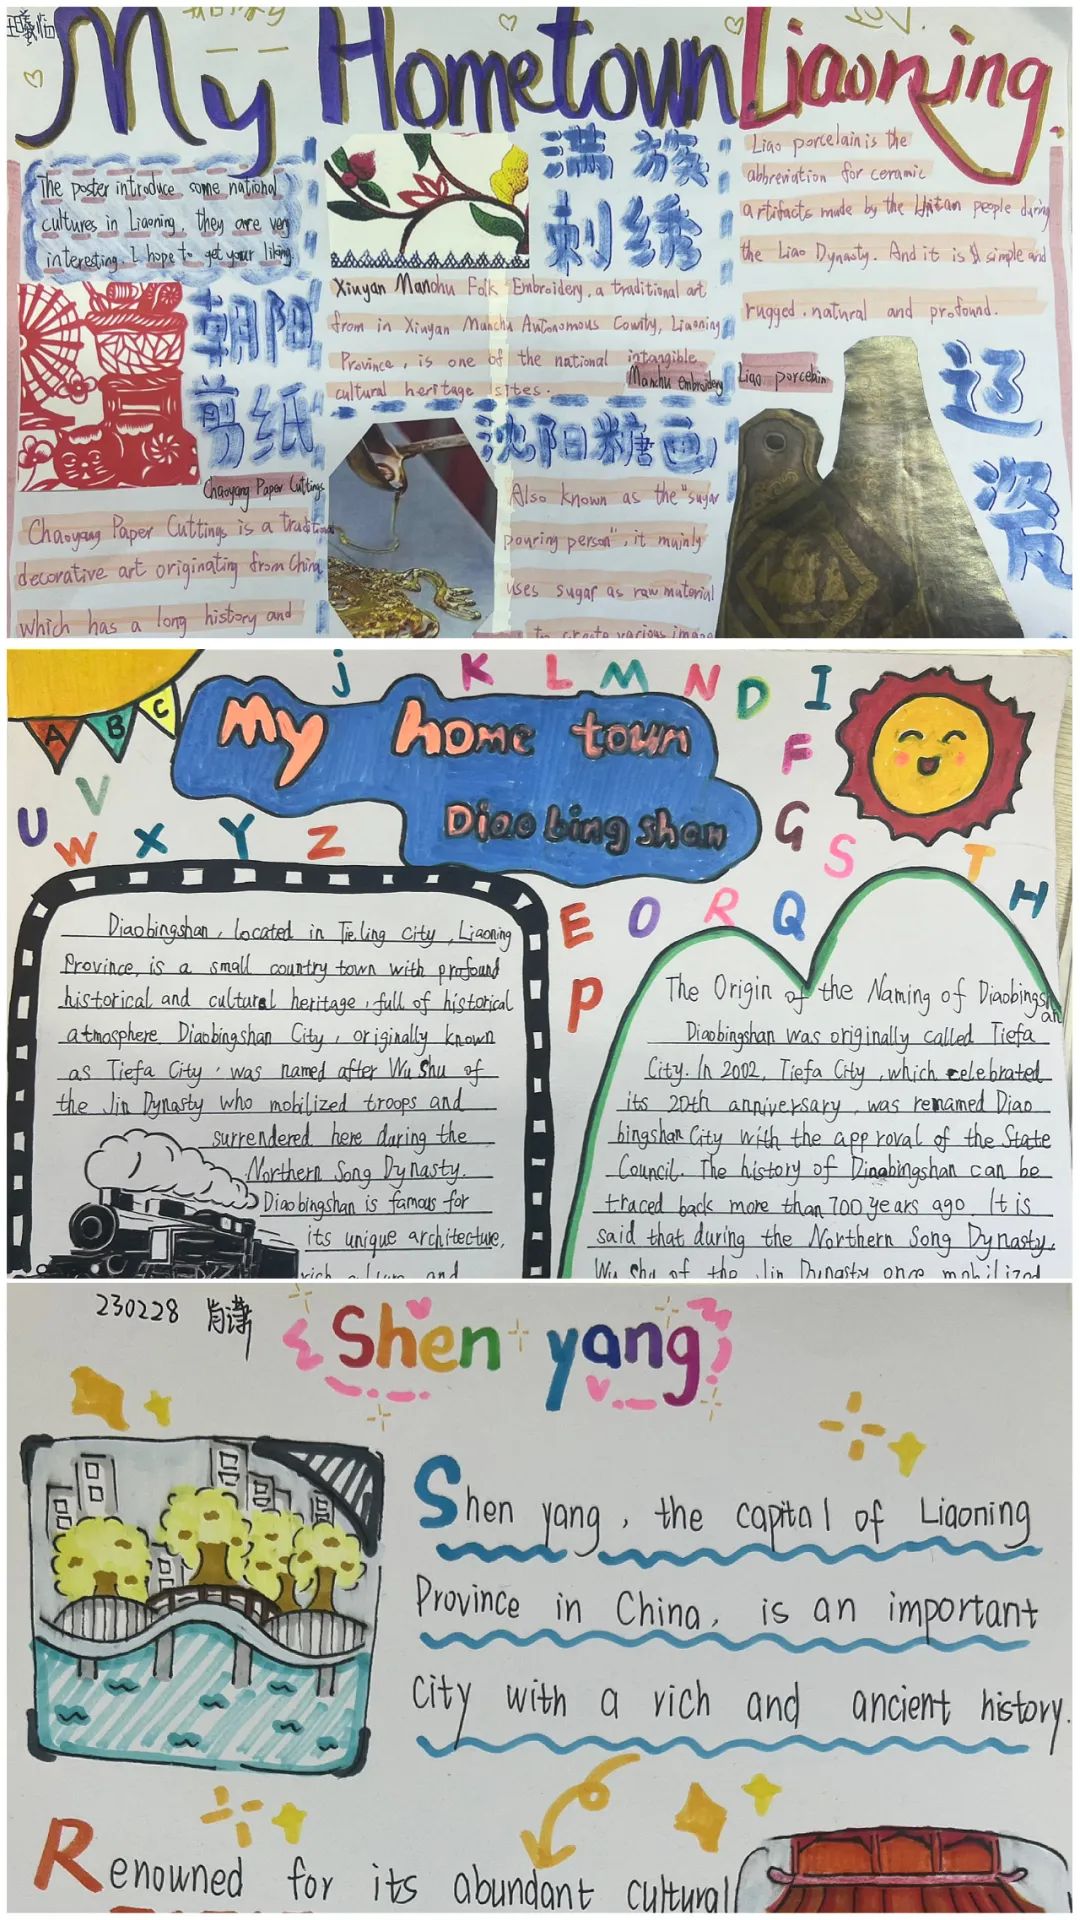 My Hometown Liaoning.
The poster introduce some national
cultures in Liaoning, they are very
interesting. I hope to get your liking.
朝阳
剪纸
Chaoyang Paper Cuttings
Chaoyang Paper Cuttings is a traditional
decorative art originating from China
which has a long history and
满族
刺绣
Xiuyan Manchu Folk Embroidery, a traditional art
from in Xiuyan Manchu Autonomous County, Liaoning
Province, is one of the national intangible
cultural heritage sites.
Manchu embroidery
沈阳糖画
Also known as the "sugar
pouring person", it mainly
uses sugar as raw material
to create various image
Liao porcelain is the
abbreviation for ceramic
artifacts made by the people during
the Liao Dynasty. And it is simple and
rugged, natural and profound.
Liao porcelain
辽
瓷
A B C
j K L M N D I
F
G
S
T
H
U V W X Y Z
E O R Q
P
My home town
Diaobingshan
Diaobingshan, located in Tieling city, Liaoning
Province, is a small country town with profound
historical and cultural heritage, full of historical
atmosphere Diaobingshan City, originally known
as Tiefa City, was named after Wu Shu of
the Jin Dynasty who mobilized troops and
surrendered here during the
Northern Song Dynasty.
Diaobingshan is famous for
its unique architecture,
rich culture and
The Origin of the Naming of Diaobingshan
Diaobingshan was originally called Tiefa
City. In 2002, Tiefa City, which celebrated
its 20th anniversary, was renamed Diao
bingshan City with the approval of the State
Council. The history of Diaobingshan can be
traced back more than 700 years ago. It is
said that during the Northern Song Dynasty,
Wu Shu of the Jin Dynasty once mobilized
230228 肖潇
Shen yang
Shen yang, the capital of Liaoning
Province in China, is an important
city with a rich and ancient history.
Renowned for its abundant cultural